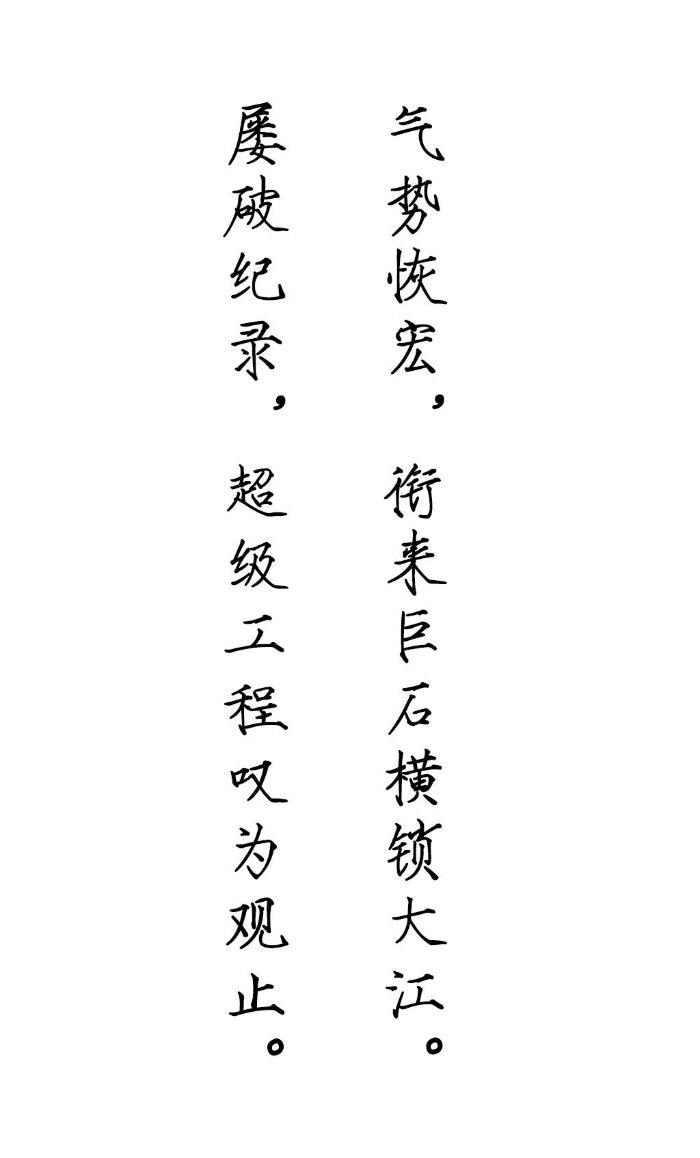 气势恢宏，衔来巨石横锁大江。
屡破纪录，超级工程叹为观止。